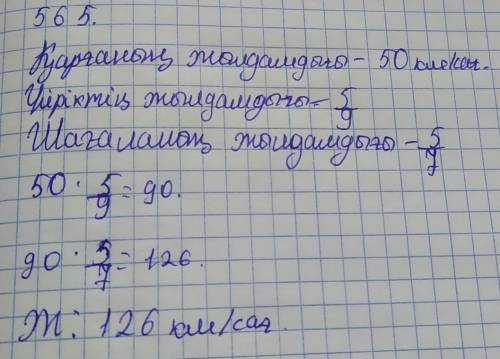 565.
Қарғаның жылдамдығы - 50 км/сағ.
Үйректің жылдамдығы - 5/9
Шағаланың жылдамдығы - 5/7
50 · 5/9 = 90.
90 · 5/7 = 126.
Ж: 126 км/сағ.